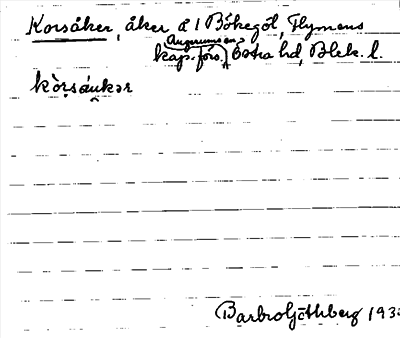 Korsåker, åker å 1 Bökegöl, Flymens
kap.förs., Östra hd, Blek. l.
kòrsåukər
Barbro Göthberg 193